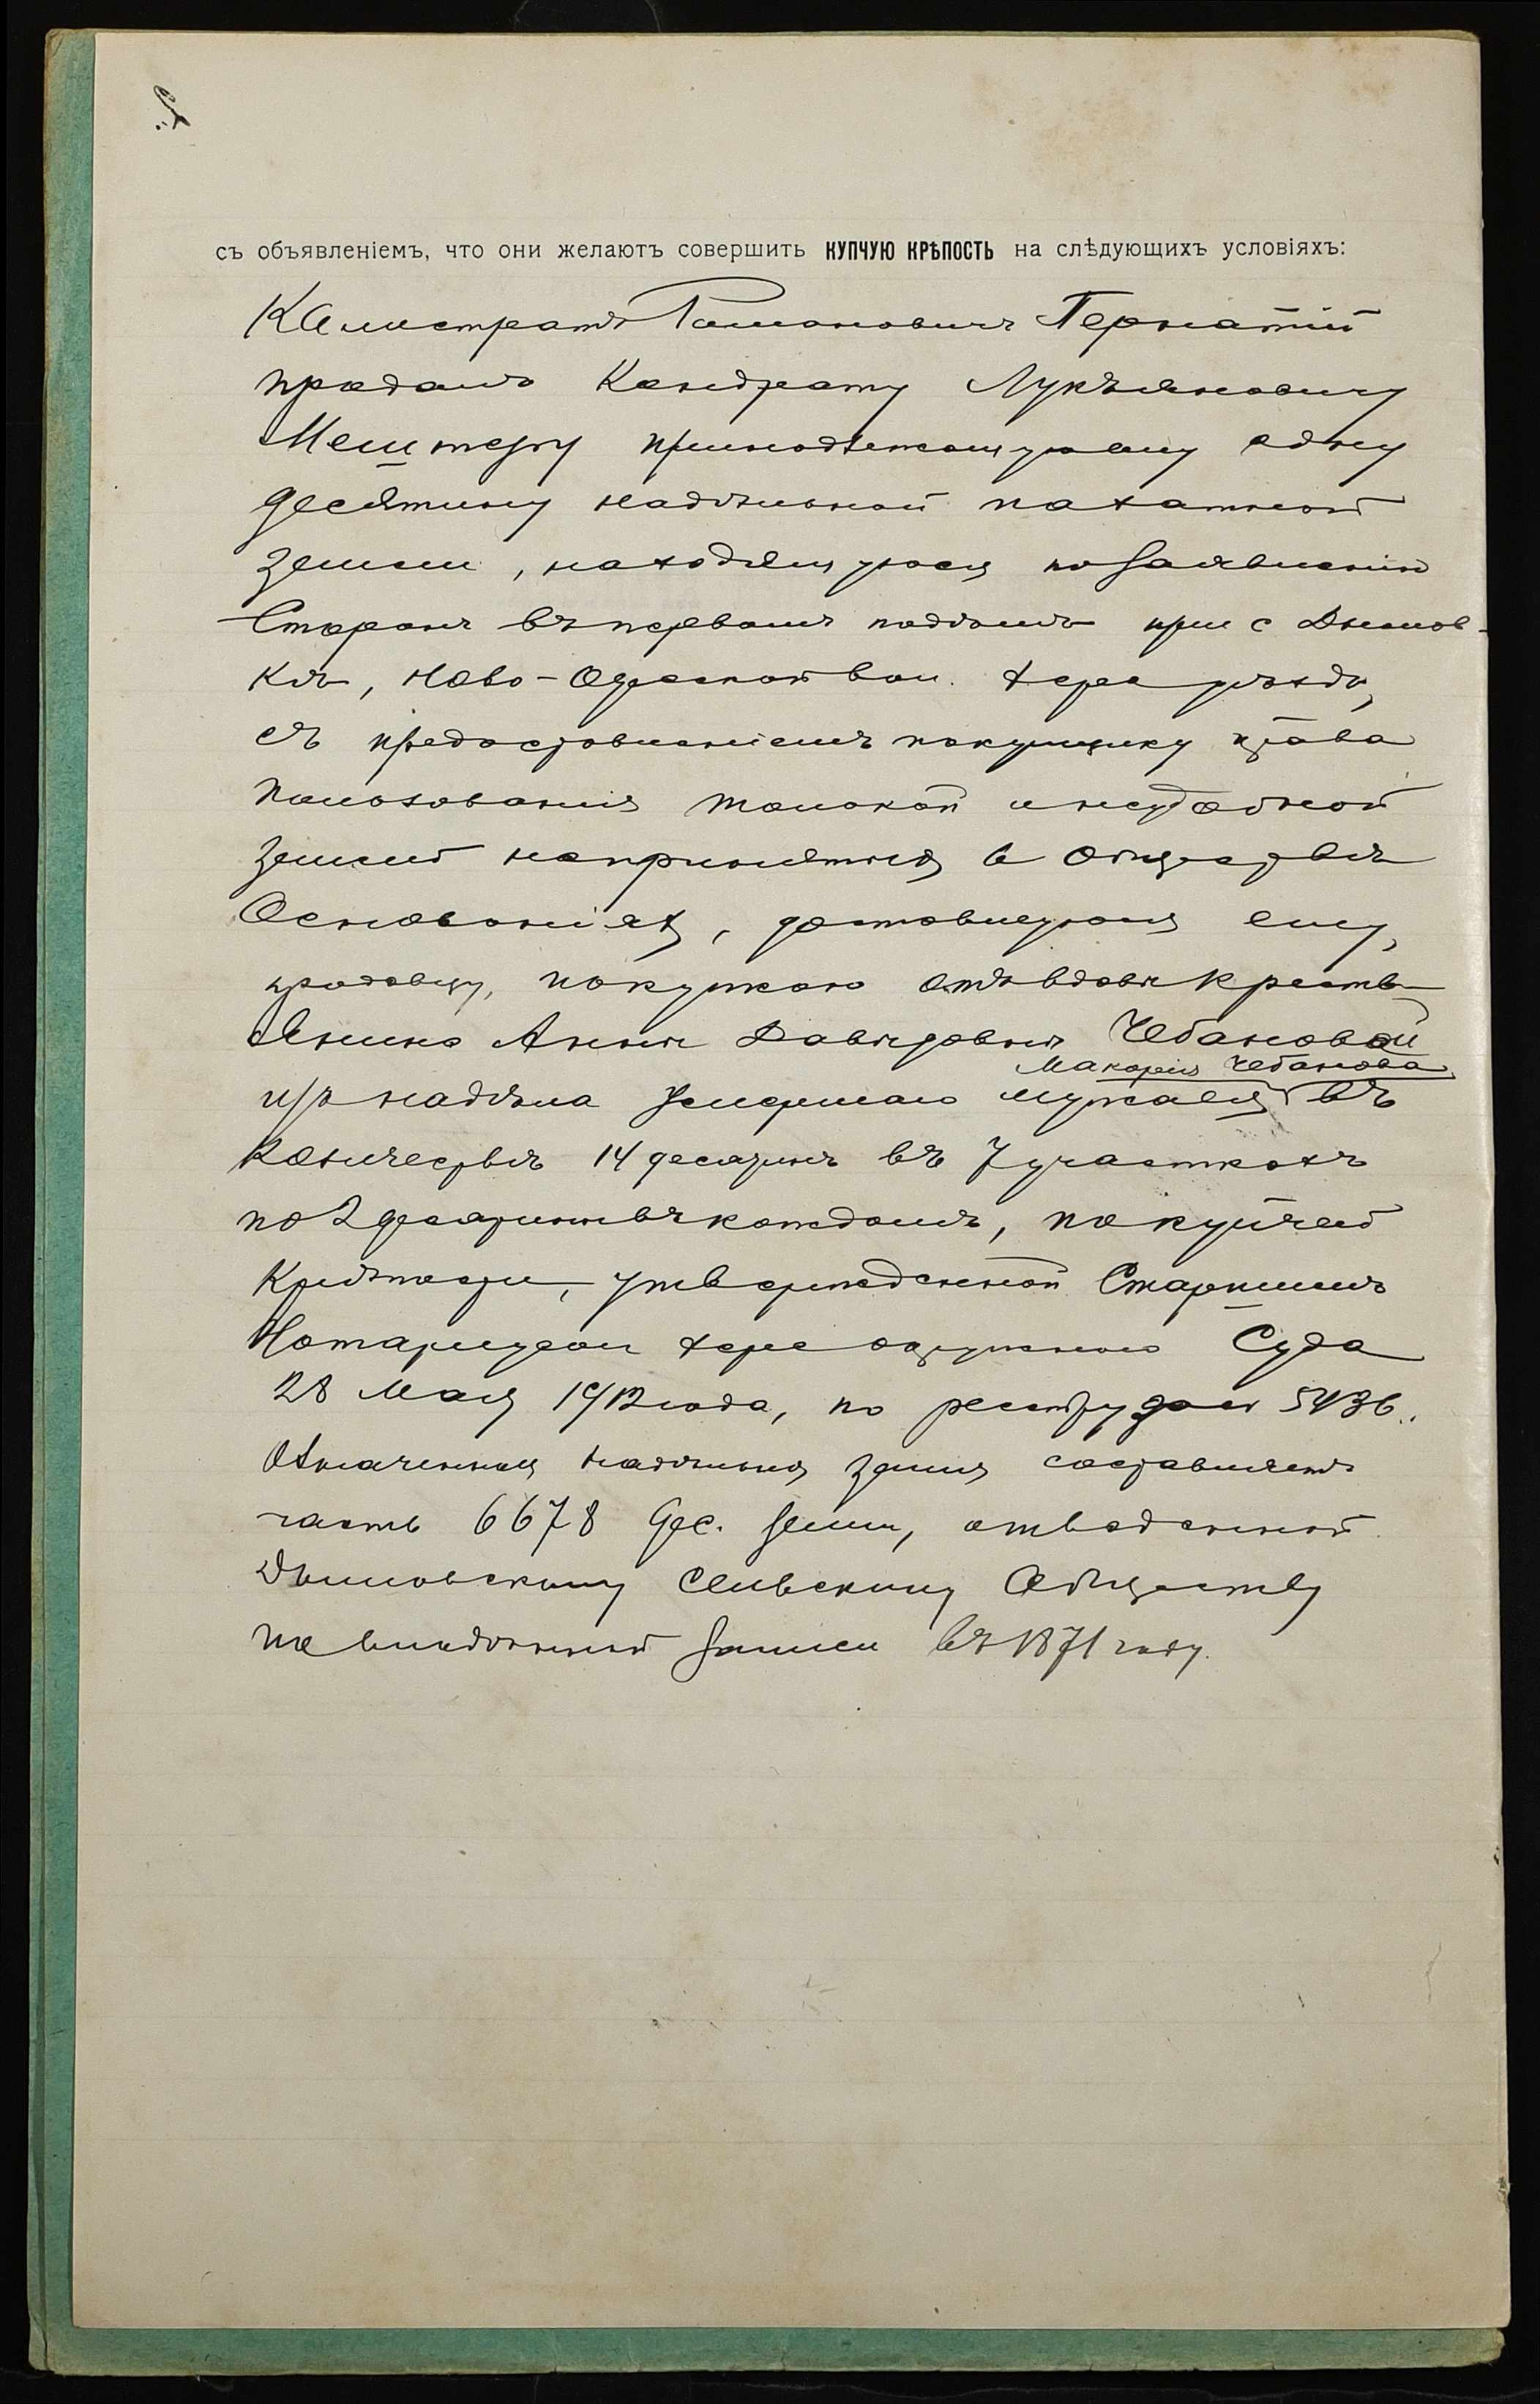 съ объявленіемъ, что они желаютъ совершить КУПЧУЮ КРѢПОСТЬ на слѣдующихъ условіяхъ:
Калистратъ Романовичъ Пернатій
продалъ Кондрату Лукьяновичу
Мештеру принадлежащую ему одну
десятину надѣльной пахатной
земли, находящуюся по заявленію
Сторонъ въ первомъ подѣлѣ при с Дымов-
кѣ, Ново-Одесской вол. Херс уѣзда,
съ предоставленіемъ покупщику права
пользованія толокой и неудобной
землей на принятыхъ в обществѣ
Основаніяхъ, доставшуюся ему,
продавцу, покупкою отъ вдовы Кресть-
янина Анны Давыдовны Чебановой
Макарія Чебанова
изъ надѣла умершаго мужа ея въ
количествѣ 14 десятинъ въ 7 участкахъ
по 2 десятины въ каждомъ, по купчей
Крѣпости, утвержденной Старшимъ
Нотаріусом Херс окружного Суда
28 Мая 1912 года, по реестру 5436.
Означенная надѣльная земля составляетъ
часть 6678 дес. земли, отведенной
Дымовскому Сельскому Обществу
по владѣнной записи въ 1871 году.